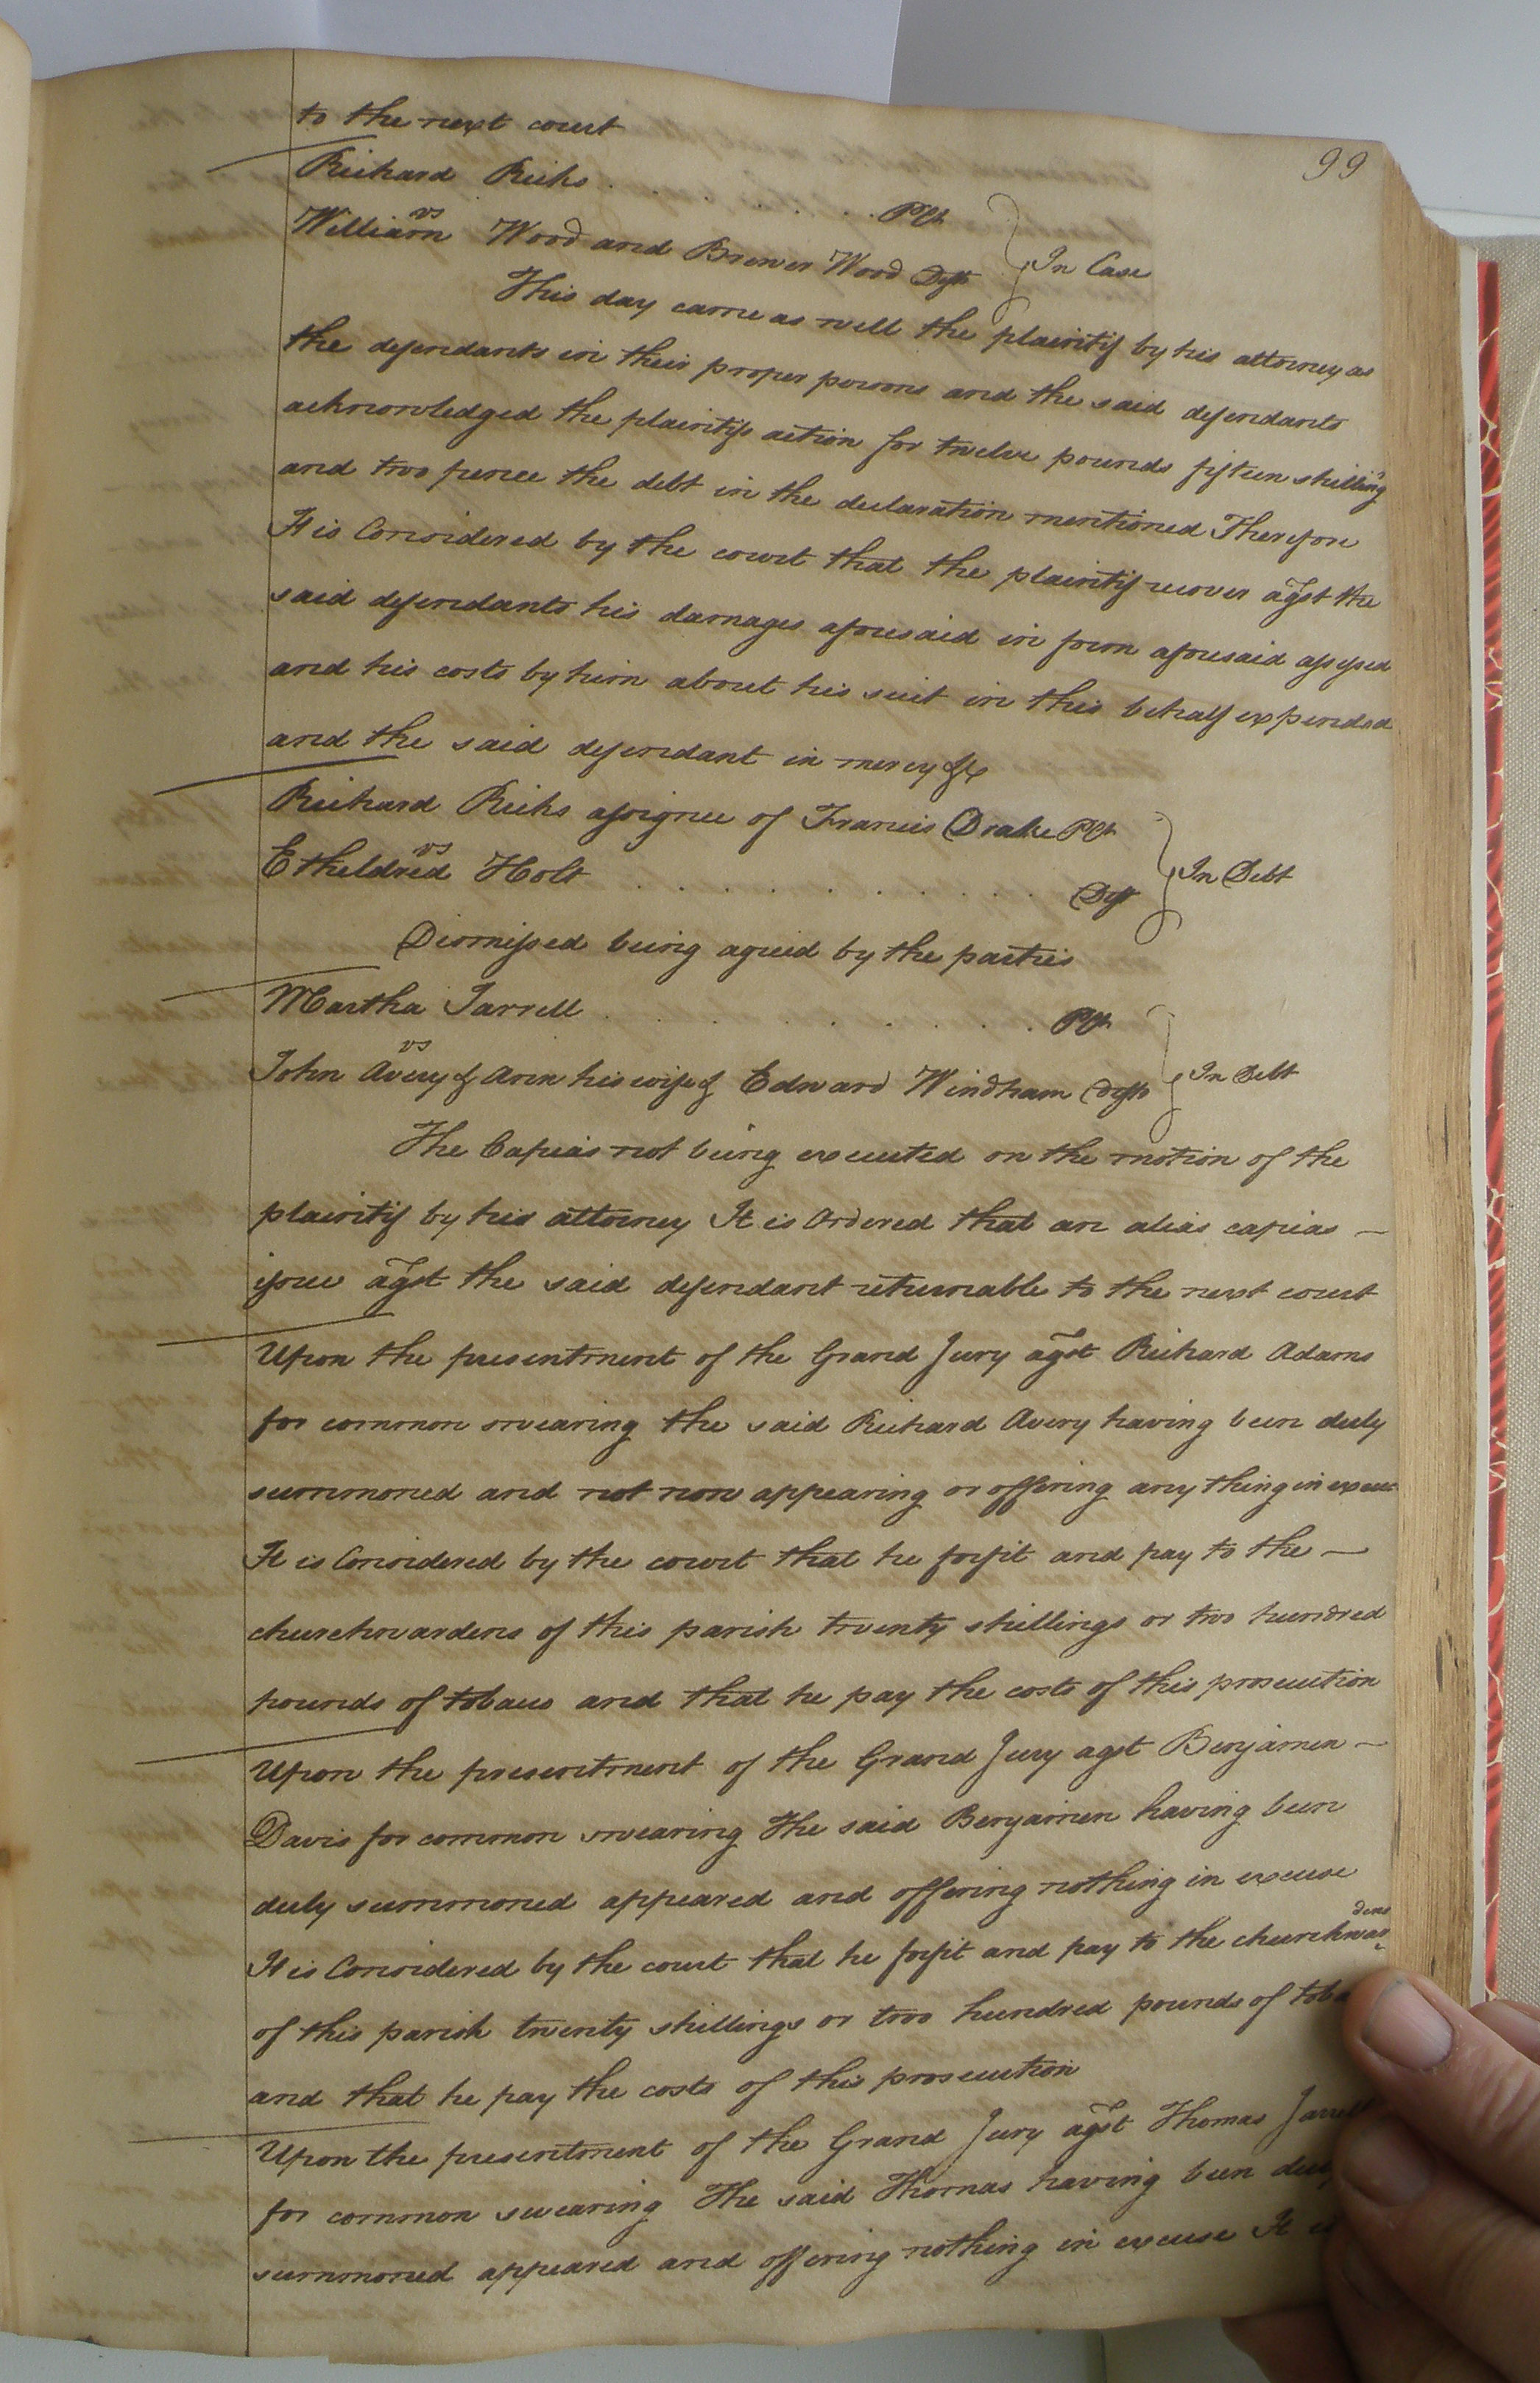 99
to the next court
Richard Ricks . . . . . . Plt
vs
William Wood and Brewer Wood Dfts } In Case
This day came as well the plaintif by his attorney as
the defendants in their proper persons and the said defendants
acknowledged the plaintifs action for twelve pounds fifteen shilling
and two pence the debt in the declaration mentioned Therefore
It is Considered by the court that the plaintif recover agst the
said defendants his damages aforesaid in form aforesaid assessed
and his costs by him about his suit in this behalf expended
and the said defendant in mercy &c
Richard Ricks assignee of Francis Drake Plt
vs
Etheldred Holt . . . . . . . . . . . Dft } In Debt
Dismissed being agreed by the parties
Martha Jarrell . . . . . . . . . Plt
vs
John Avery & Ann his wife & Edward Windham Dfts } In Debt
The Capias not being executed on the motion of the
plaintif by his attorney It is Ordered that an alias capias —
issue agst the said defendant returnable to the next court
Upon the presentment of the Grand Jury agst Richard Adams
for common swearing the said Richard Avery having been duly
summoned and not now appearing or offering any thing in excuse
It is Considered by the court that he forfit and pay to the —
churchwardens of this parish twenty shillings or two hundred
pounds of tobacco and that he pay the costs of this prosecution
Upon the presentment of the Grand Jury agst Benjamen —
Davis for common swearing The said Benjamen having been
duly summoned appeared and offering nothing in excuse
It is Considered by the court that he forfit and pay to the churchwardens
of this parish twenty shillings or two hundred pounds of toba
and that he pay the costs of this prosecution
Upon the presentment of the Grand Jury agst Thomas Jarrell
for common swearing The said Thomas having been duly
summoned appeared and offering nothing in excuse It is